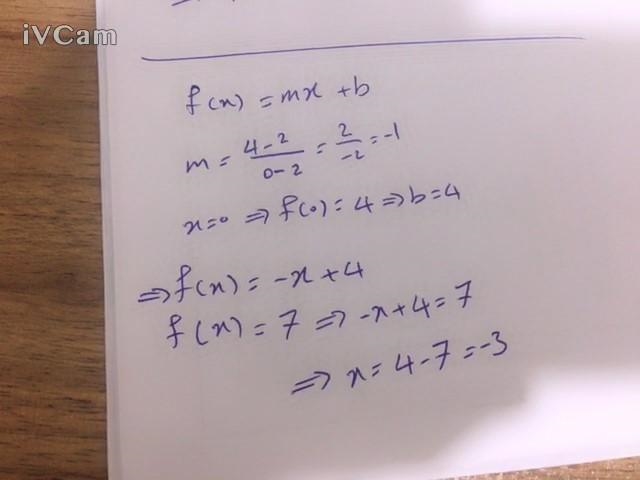 iVCam
f(x) = mx + b
m = \frac{4-2}{0-2} = \frac{2}{-2} = -1
x=0 ⇒ f(0) = 4 ⇒ b=4
⇒ f(x) = -x + 4
f(x) = 7 ⇒ -x+4 = 7
⇒ x = 4-7 = -3